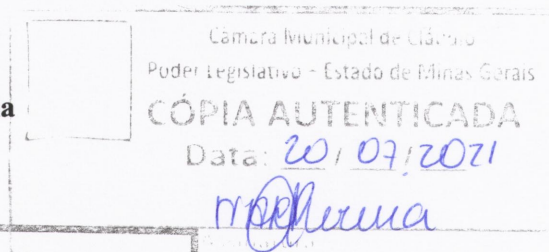 Câmara Municipal de Cláudio
Poder Legislativo - Estado de Minas Gerais
a
CÓPIA AUTENTICADA
Data: 20/07/2021